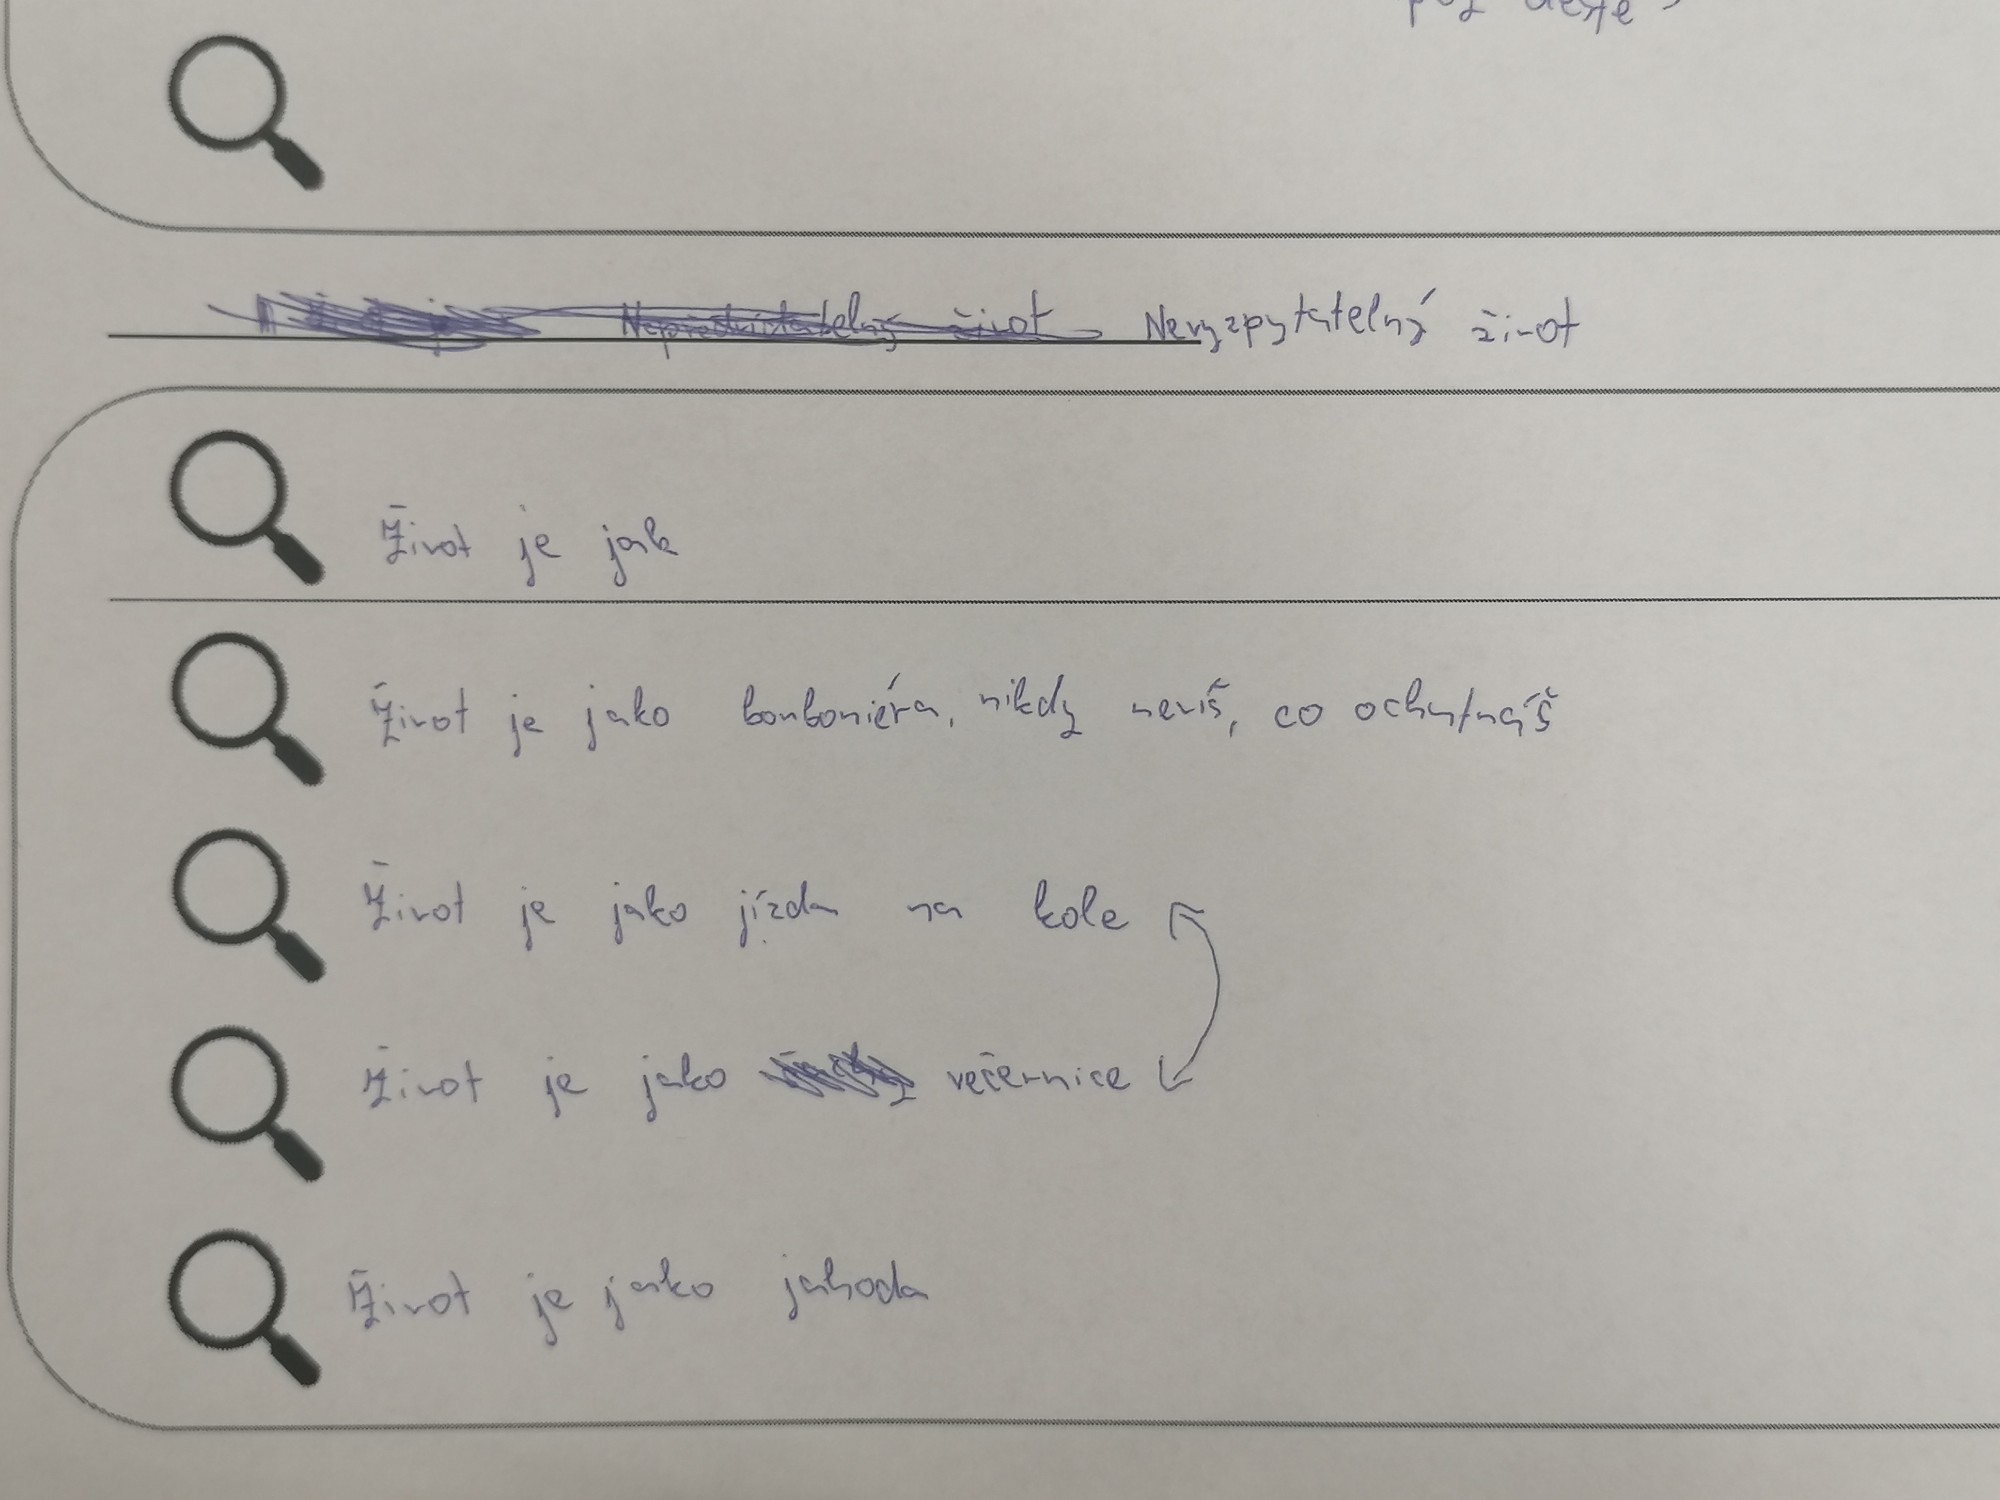 Nepředvídatelný život Nevyzpytatelný život
Život je jak
Život je jako bonboniéra, nikdy nevíš, co ochutnáš
Život je jako jízda na kole
Život je jako večernice
Život je jako jahoda